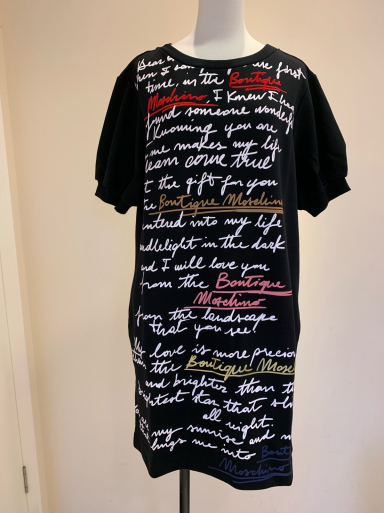 Dear
when I saw you the first
time, in the Boutique
Moschino, I knew I had
found someone wonderful
Knowing you are
me makes my life
dream come true
t the gift for you
the Boutique Moschino
entered into my life
andlelight in the dark
and I will love you
from the Boutique
Moschino
from the landscape
that you see!
My love is more precious
the Boutique Mosc
and brighter than t
brightest star that s
all night.
my sunrise and
brings me into Bout
Moschino